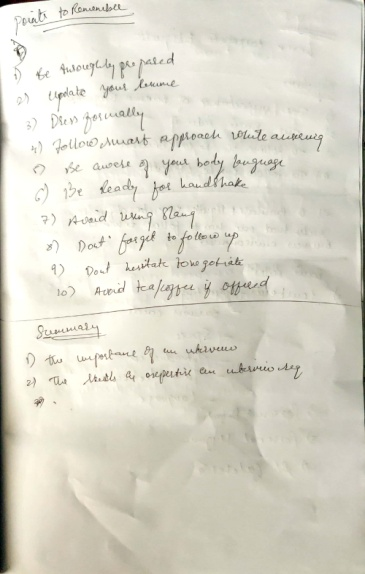 Points to Remember
1) Be thoroughly prepared
2) Update your resume
3) Dress formally
4) Follow smart approach while answering
5) Be aware of your body language
6) Be Ready for handshake
7) Avoid using Slang
8) Dont forget to follow up
9) Dont hesitate to negotiate
10) Avoid tea/coffee if offered
Summary
1) The importance of an interview
2) The skills & expertise an interview